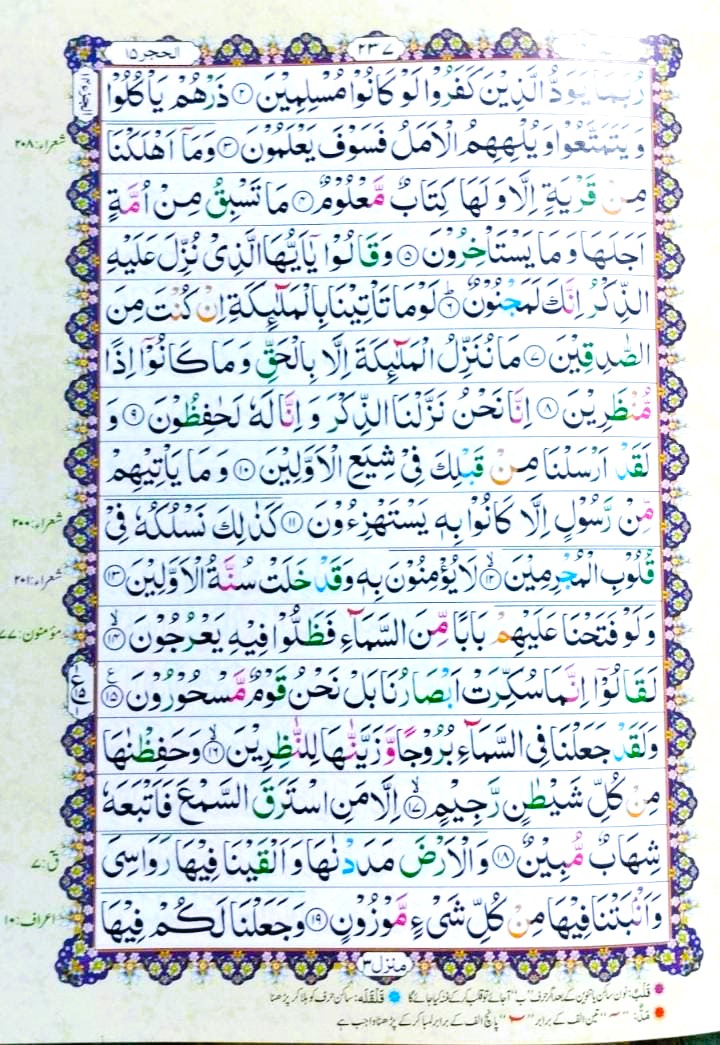 الحجر ۱۵
۲۳۷
رُبَمَا يَوَدُّ الَّذِيْنَ كَفَرُوْا لَوْ كَانُوْا مُسْلِمِيْنَ ﴿۲﴾ ذَرْهُمْ يَاْكُلُوْا
وَيَتَمَتَّعُوْا وَيُلْهِهِمُ الْاَمَلُ فَسَوْفَ يَعْلَمُوْنَ ﴿۳﴾ وَمَاۤ اَهْلَكْنَا
مِنْ قَرْيَةٍ اِلَّا وَلَهَا كِتَابٌ مَّعْلُوْمٌ ﴿۴﴾ مَا تَسْبِقُ مِنْ اُمَّةٍ
اَجَلَهَا وَمَا يَسْتَاْخِرُوْنَ ﴿۵﴾ وَقَالُوْا يٰۤاَيُّهَا الَّذِيْ نُزِّلَ عَلَيْهِ
الذِّكْرُ اِنَّكَ لَمَجْنُوْنٌ ﴿۶﴾ؕ لَوْ مَا تَاْتِيْنَا بِالْمَلٰٓئِكَةِ اِنْ كُنْتَ مِنَ
الصّٰدِقِيْنَ ﴿۷﴾ مَا نُنَزِّلُ الْمَلٰٓئِكَةَ اِلَّا بِالْحَقِّ وَمَا كَانُوْۤا اِذًا
مُّنْظَرِيْنَ ﴿۸﴾ اِنَّا نَحْنُ نَزَّلْنَا الذِّكْرَ وَاِنَّا لَهٗ لَحٰفِظُوْنَ ﴿۹﴾ وَ
لَقَدْ اَرْسَلْنَا مِنْ قَبْلِكَ فِيْ شِيَعِ الْاَوَّلِيْنَ ﴿۱۰﴾ وَمَا يَاْتِيْهِمْ
مِّنْ رَّسُوْلٍ اِلَّا كَانُوْا بِهٖ يَسْتَهْزِءُوْنَ ﴿۱۱﴾ كَذٰلِكَ نَسْلُكُهٗ فِيْ
قُلُوْبِ الْمُجْرِمِيْنَ ﴿۱۲﴾ۙ لَا يُؤْمِنُوْنَ بِهٖ وَقَدْ خَلَتْ سُنَّةُ الْاَوَّلِيْنَ ﴿۱۳﴾
وَلَوْ فَتَحْنَا عَلَيْهِمْ بَابًا مِّنَ السَّمَآءِ فَظَلُّوْا فِيْهِ يَعْرُجُوْنَ ﴿۱۴﴾ۙ
لَقَالُوْۤا اِنَّمَا سُكِّرَتْ اَبْصَارُنَا بَلْ نَحْنُ قَوْمٌ مَّسْحُوْرُوْنَ ﴿۱۵﴾ع
وَلَقَدْ جَعَلْنَا فِي السَّمَآءِ بُرُوْجًا وَّزَيَّنّٰهَا لِلنّٰظِرِيْنَ ﴿۱۶﴾ۙ وَحَفِظْنٰهَا
مِنْ كُلِّ شَيْطٰنٍ رَّجِيْمٍ ﴿۱۷﴾ۙ اِلَّا مَنِ اسْتَرَقَ السَّمْعَ فَاَتْبَعَهٗ
شِهَابٌ مُّبِيْنٌ ﴿۱۸﴾ وَالْاَرْضَ مَدَدْنٰهَا وَاَلْقَيْنَا فِيْهَا رَوَاسِيَ
وَاَنْۢبَتْنَا فِيْهَا مِنْ كُلِّ شَيْءٍ مَّوْزُوْنٍ ﴿۱۹﴾ وَجَعَلْنَا لَكُمْ فِيْهَا
شعراء:۲۰۸
شعراء:۲۰۰
شعراء:۲۰۱
ق:۷
اعراف:۱۰
منزل۳
قلب: نون ساکن یا تنوین کے بعد اگر حرف "ب" آ جائے تو قلب کر کے غنہ کیا جائے گا قلقلہ: ساکن حرف کو ہلا کر پڑھنا
مد: "ٓ" تین الف کے برابر "ٓ" پانچ الف کے برابر لمبا کر کے پڑھنا واجب ہے